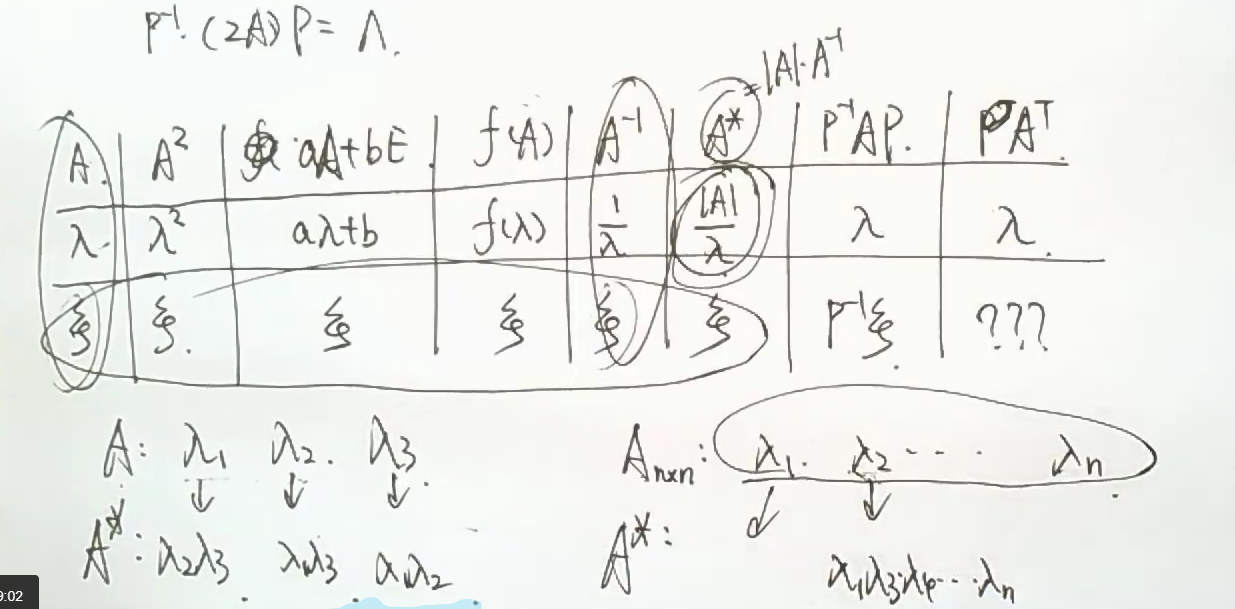 P⁻¹·(2A)P = Λ.
= |A|·A⁻¹
A. A² aA+bE. f(A) A⁻¹ A* P⁻¹AP. Aᵀ.
λ. λ² aλ+b f(λ) 1/λ |A|/λ λ λ.
ξ ξ. ξ ξ ξ ξ P⁻¹ξ. ???
A: λ₁ λ₂. λ₃. Aₙₓₙ: λ₁. λ₂ ··· λₙ.
↓ ↓ ↓ ↓ ↓
A*: λ₂λ₃. λ₁λ₃. λ₁λ₂ A*: λ₁λ₃λ₄···λₙ
9:02